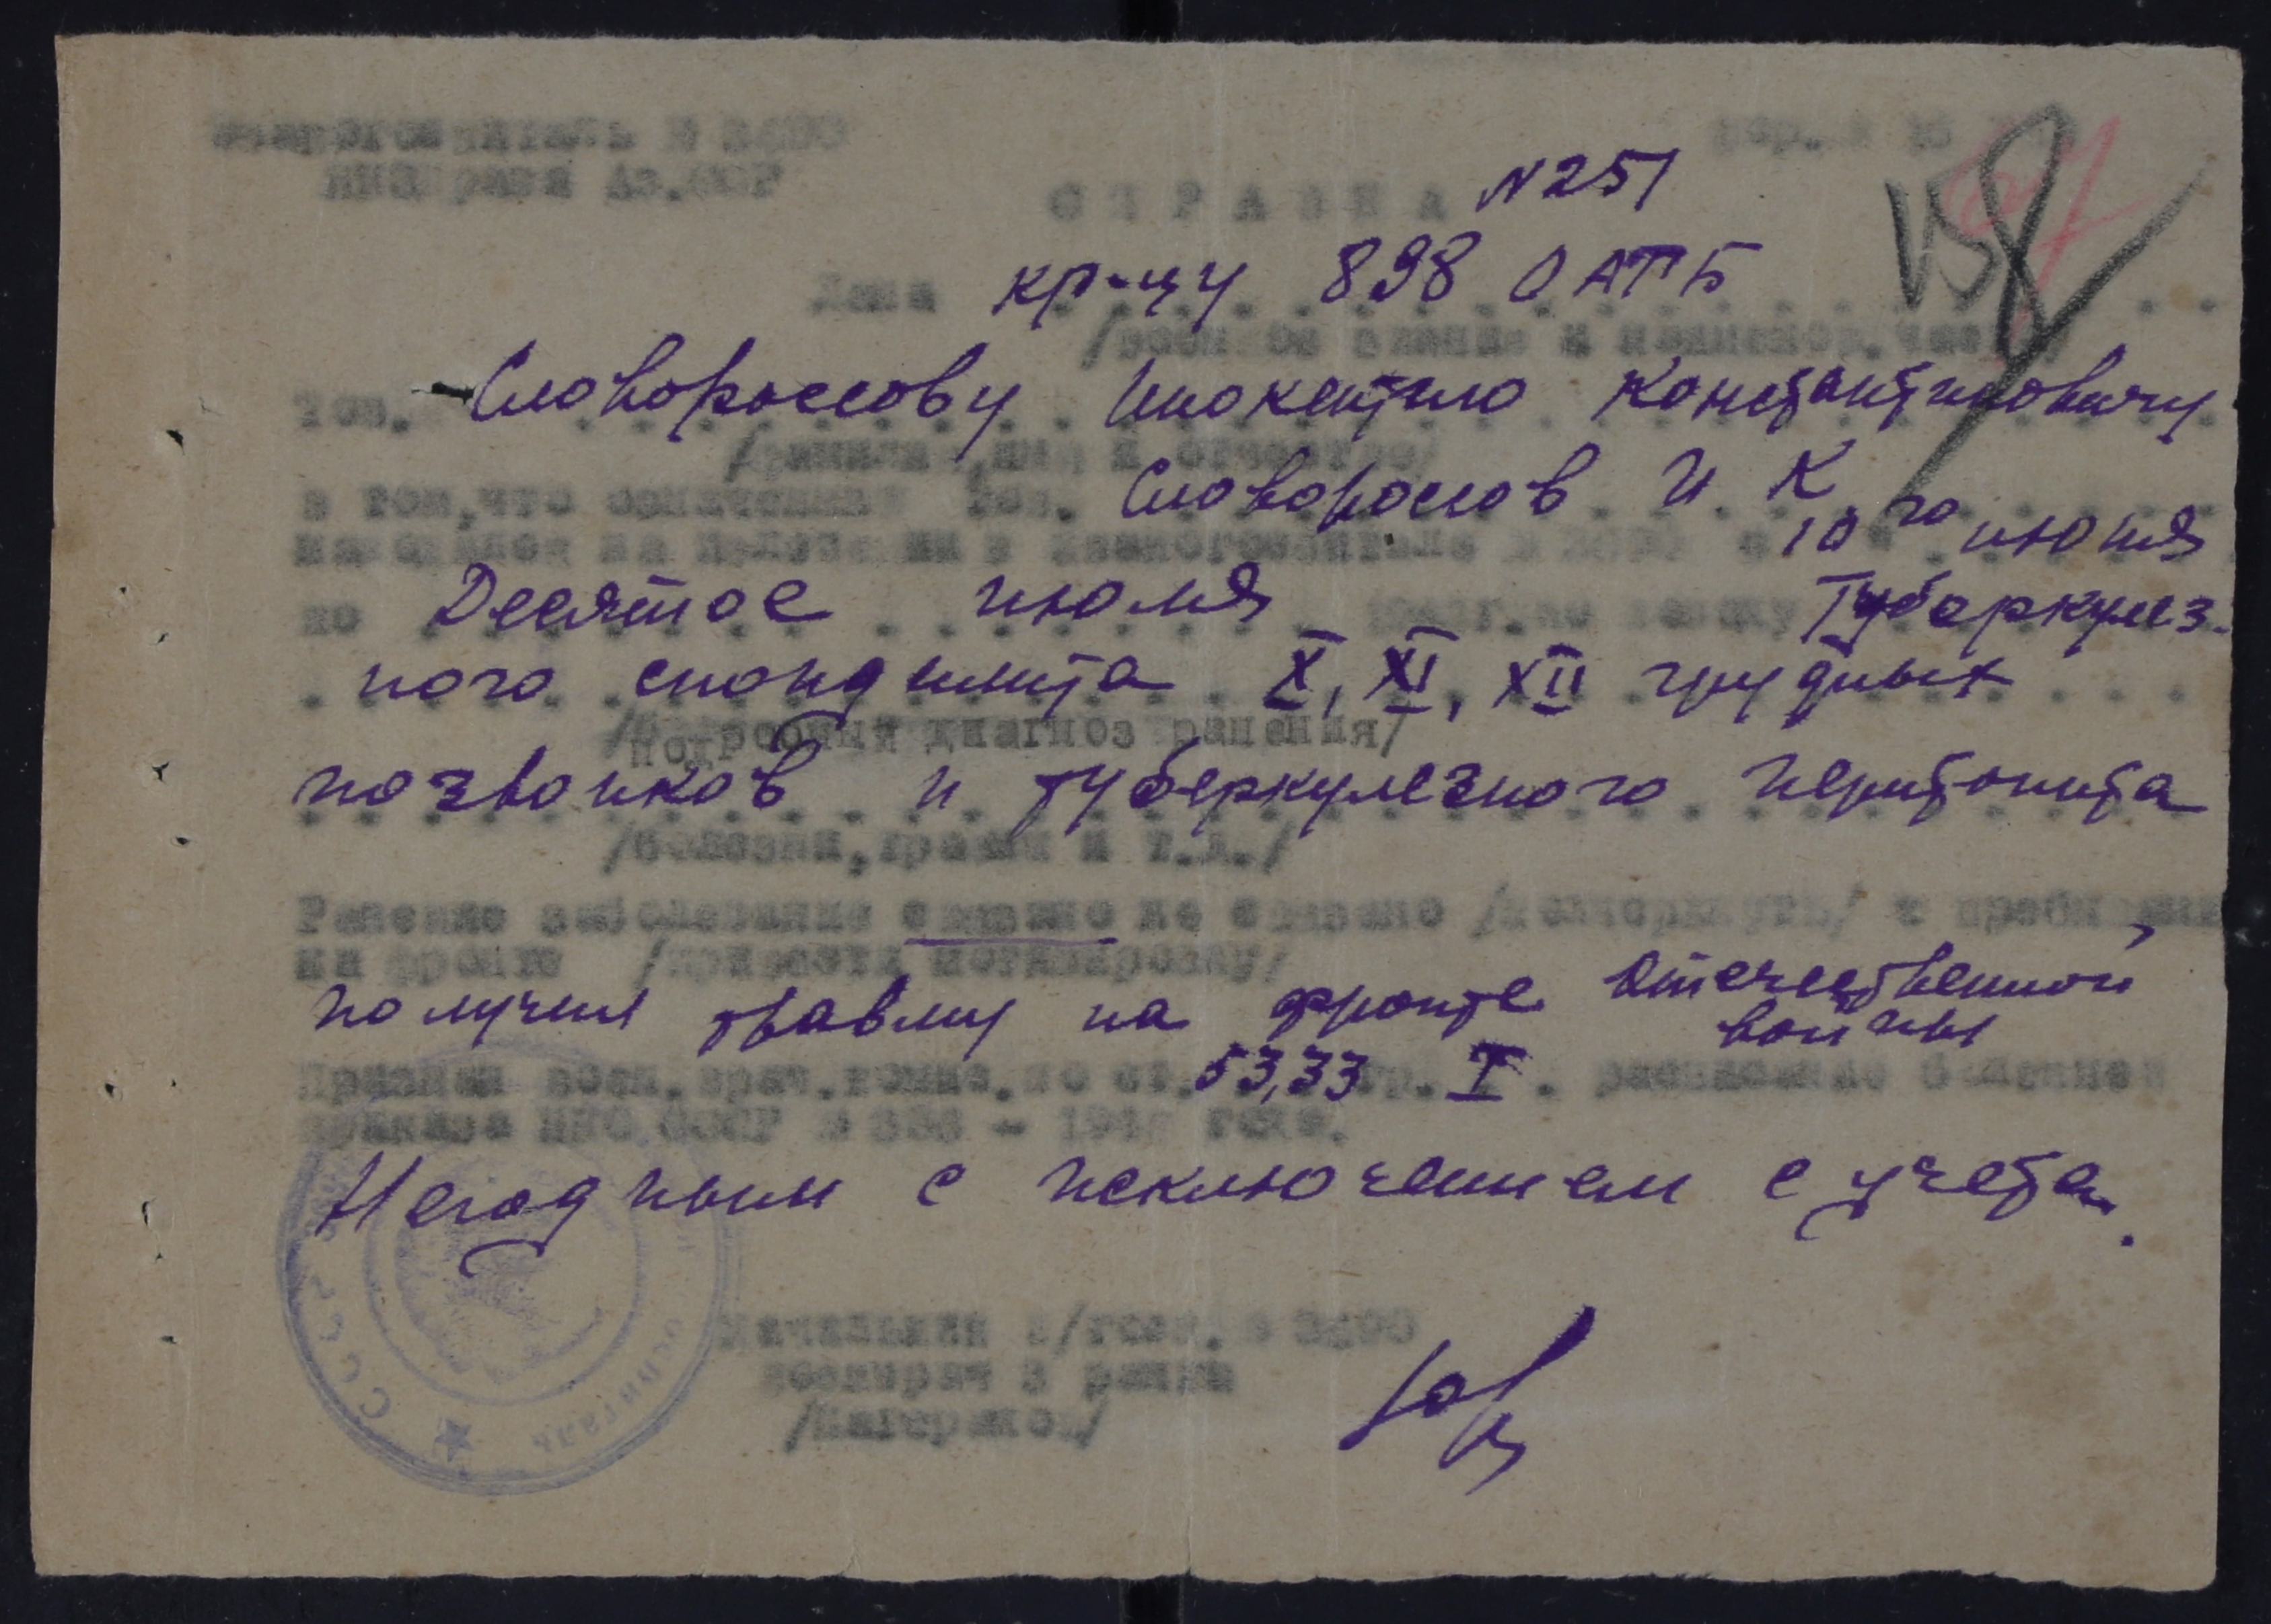 Эвакогоспиталь № 3490
НКЗдрава Аз.ССР
СПРАВКА N 251
158
Дана кр-цу 898 ОАТБ
/воинское звание и наименов. части/
Тов. Словороссову Инокентию Константиновичу
/фамилия, имя и отчество/
в том, что означенный тов. Словороссов И. К
находился на излечении в Эвакогоспитале № 3490 с 10го июня
по Десятое июля Туберкулез-
ного спондилита X, XI, XII грудных
/подробный диагноз ранения/
позвонков и туберкулезного перитонита
/болезни, травмы и т.д./
Ранение заболевание связано не связано /подчеркнуть/ с пребыванием
на фронте /привести мотивировку/
получил травму на фронте Отечественной
войны
Признан воен. врач. комис. по ст. 53,33 гр. I. расписание болезней
приказа НКО СССР № 336 – 194 года.
Негодным с исключением с учета.
Начальник э/госп. № 3490
военврач 3 ранга
СССР
госпиталь